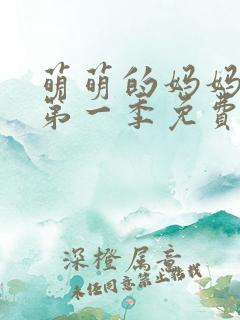 萌萌的妈妈
第一季免费
深橙属意
未经同意禁止转载